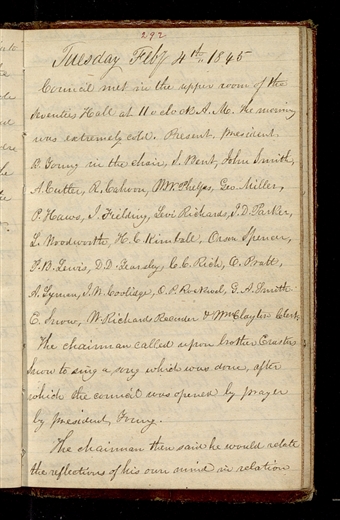 292
Tuesday Feby 4th 1845
Council met in the upper room of the
seventies Hall at 11 o clock A.M. the morning
was extremely cold. Present. President
B. Young in the chair, S. Bent, John Smith,
A. Cutler, R. Cahoon, W.W. Phelps, Geo. Miller,
P. Haws, J. Fielding, Levi Richards, J.D. Parker,
L. Woodworth, H. C. Kimball, Orson Spencer,
P. B. Lewis, D.D. Yearsley, C. C. Rich, O. Pratt,
A. Lyman, J. W. Coolidge, O. P. Rockwel, G. A. Smith
E. Snow, W. Richards Recorder & Wm Clayton Clerk,
The chairman called upon brother Erastus
Snow to sing a song which was done, after
which the council was opened by prayer
by president Young.
The chairman then said he would relate
the reflections of his own mind in relation